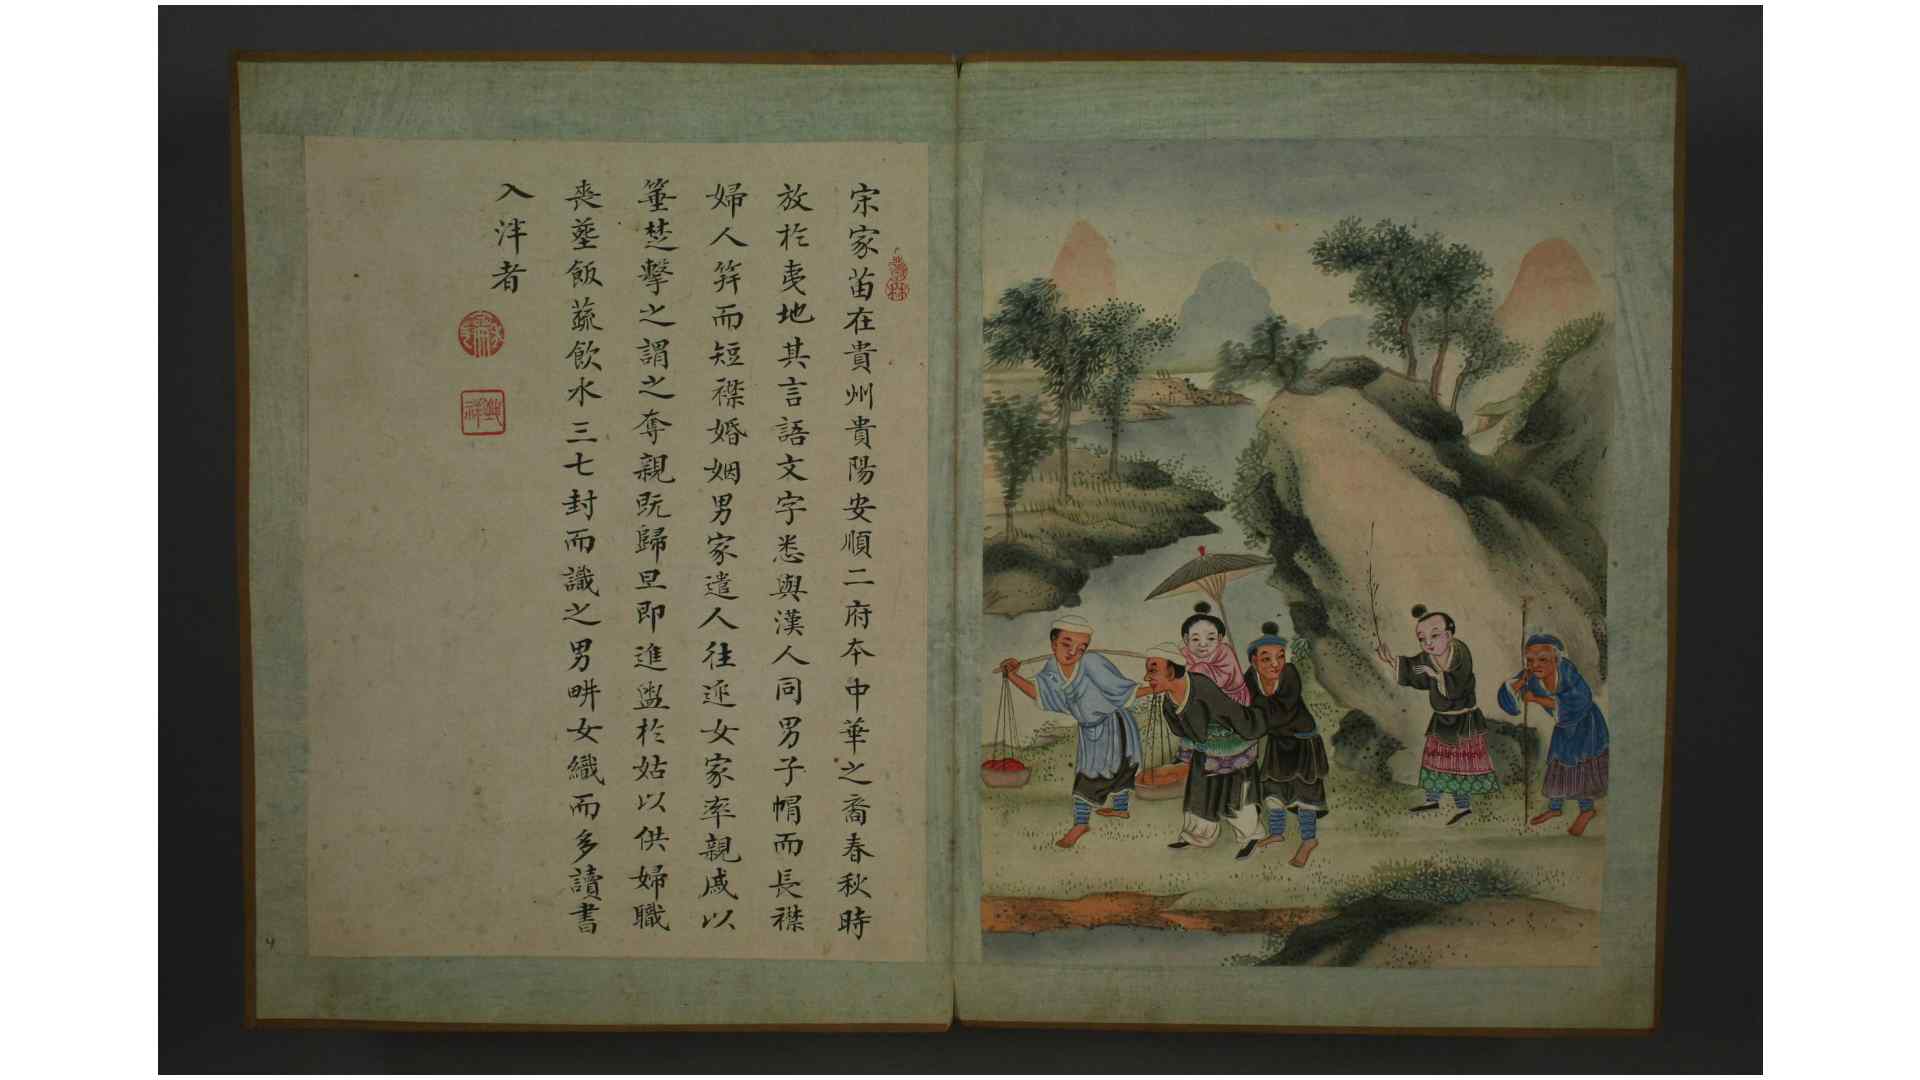 宋家苗在貴州貴陽安順二府本中華之裔春秋時
放於夷地其言語文字悉與漢人同男子帽而長襟
婦人笄而短襟婚姻男家遣人往迎女家率親戚以
箠楚擊之謂之奪親既歸旦即進盥於姑以供婦職
喪塟飯蔬飲水三七封而識之男畊女織而多讀書
入泮者